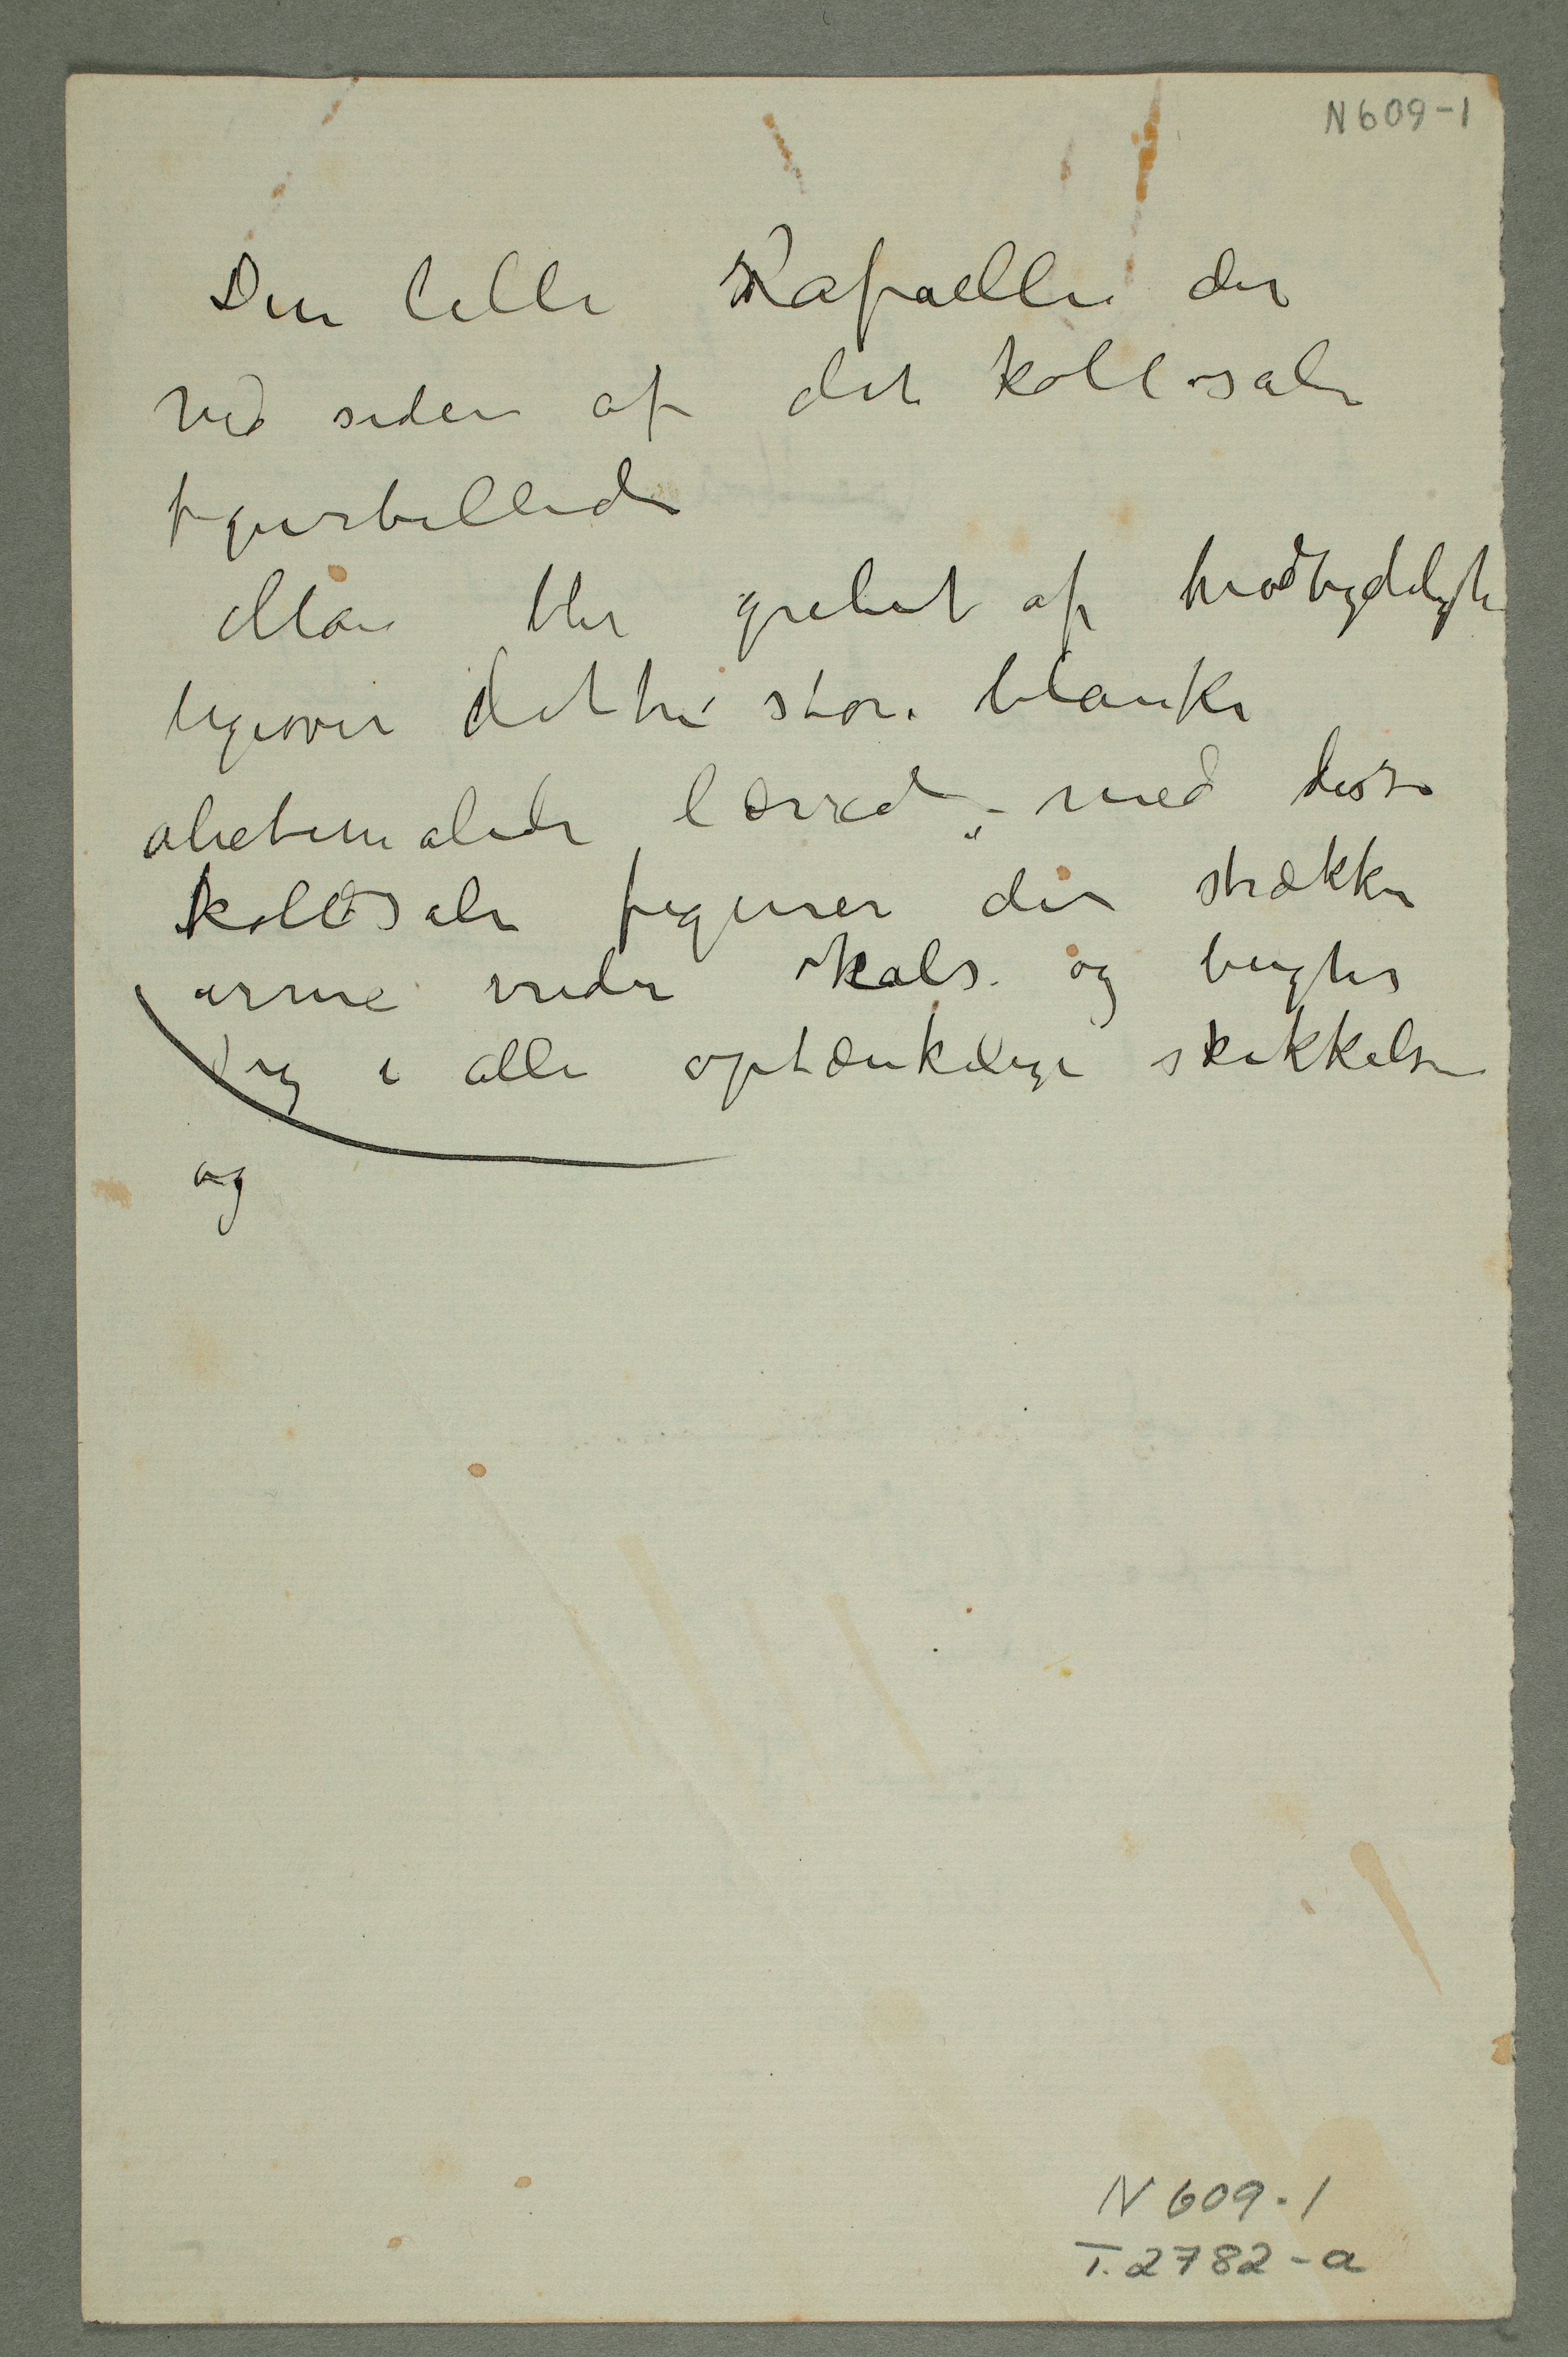 N609-1
Den lille Rafaeller der
ved siden af det kollosale
figurbillede
Man blir grebet af modbydelighe
ligeover dette store blanke
oliebemalede lærred, – med disse
kollosale figurer der strækker
arme vrider hals og beugter
sig i alle optænkelige skikkelser
og
N 609-1
T. 2782-a